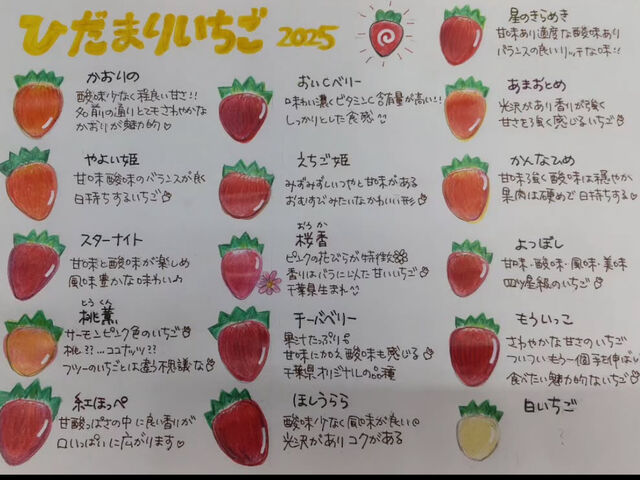 ひだまりいちご 2025
かおりの
酸味少なく程良い甘さ!!
名前の通りとてもさわやかな
かおりが魅力的♡
やよい姫
甘味酸味のバランスが良く
日持ちするいちご
スターナイト
甘味と酸味が楽しめ
風味豊かな味わい♪
とうくん
桃薫
サーモンピンク色のいちご
桃??…ココナッツ??
フツーのいちごとは違う不思議な
紅ほっぺ
甘酸っぱさの中に良い香りが
口いっぱいに広がります♡
おいCベリー
味わい濃くビタミンC含有量が高い!!
しっかりとした食感
えちご姫
みずみずしいつやと甘味がある
おむすびみたいなかわいい形
おうか
桜香
ピンクの花びらが特徴
香りはバラに似た甘いいちご
千葉県生まれ
チーバベリー
果汁たっぷり
甘味にかん酸味も感じる
千葉県オリジナルの品種
ほしうらら
酸味少なく風味が良い
光沢がありコクがある
星のきらめき
甘味あり適度な酸味あり
バランスの良いリッチな味!!
あまおとめ
光沢があり香りが強く
甘さを強く感じるいちご
かんなひめ
甘味強く酸味は穏やか
果肉は硬めで日持ちする
よつぼし
甘味・酸味・風味・美味
四ツ星級のいちご
もういっこ
さわやかな甘さのいちご
ついついもう一個手を伸ばし
食べたい魅力的ないちご
白いちご